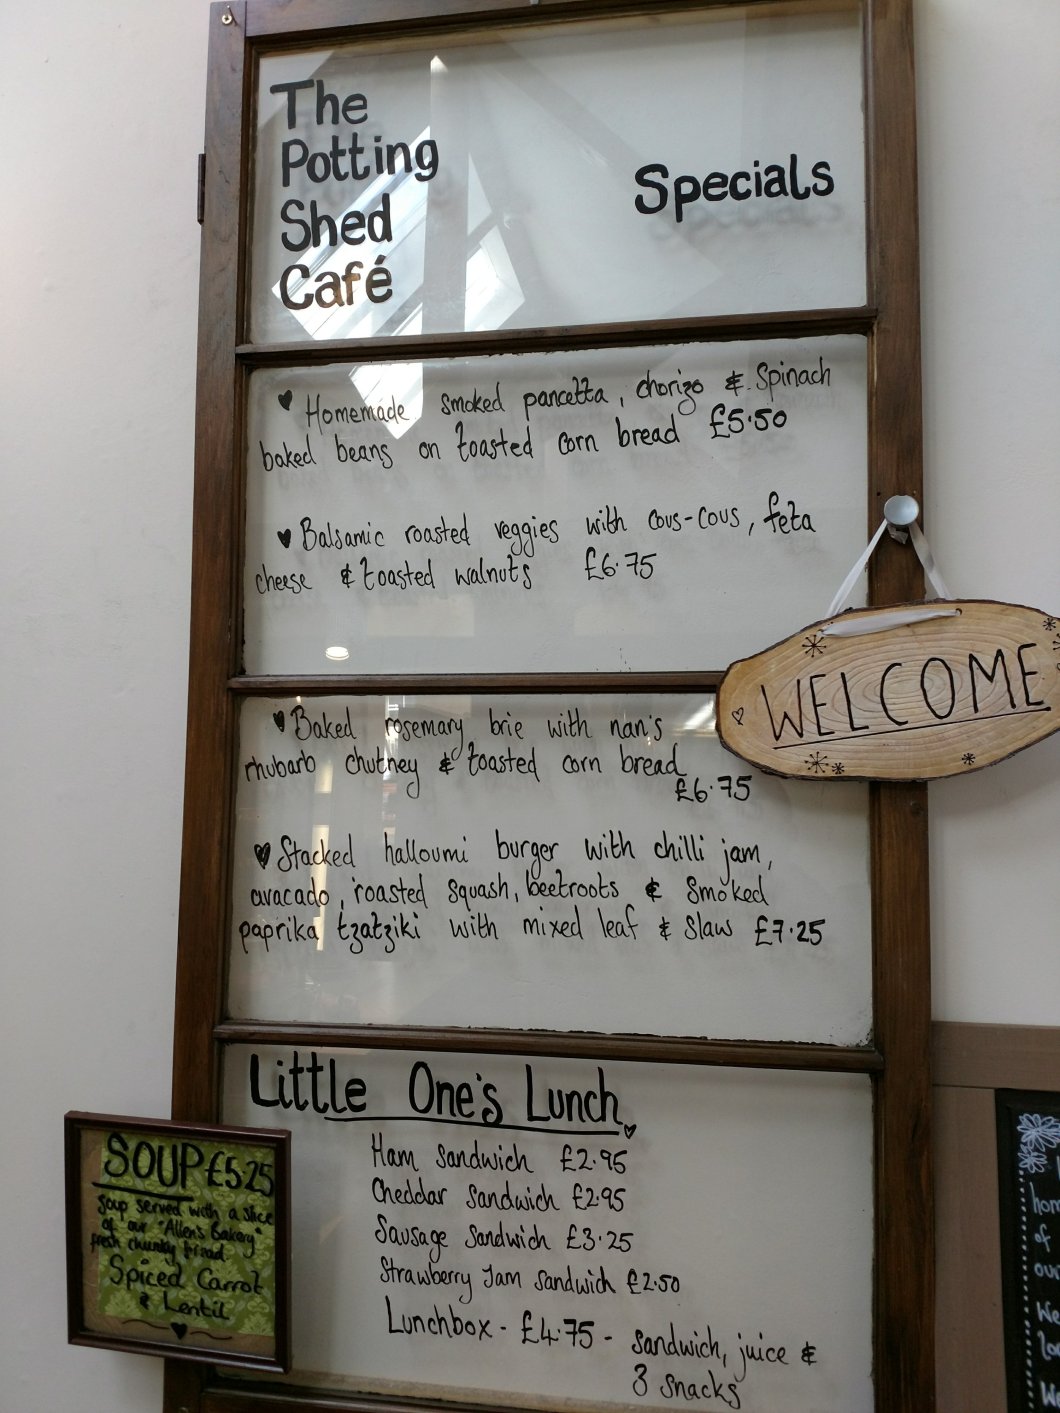 The
Potting
Shed
Café
Specials
♥ Homemade smoked pancetta, chorizo & Spinach
baked beans on toasted corn bread £5.50
♥ Balsamic roasted veggies with cous-cous, feta
cheese & toasted walnuts £6.75
WELCOME
♥ Baked rosemary brie with nan's
rhubarb chutney & toasted corn bread
£6.75
♥ Stacked halloumi burger with chilli jam,
avacado, roasted squash, beetroots & Smoked
paprika tzatziki with mixed leaf & Slaw £7.25
Little One's Lunch
Ham Sandwich £2.95
Cheddar Sandwich £2.95
Sausage Sandwich £3.25
Strawberry Jam Sandwich £2.50
Lunchbox - £4.75 - sandwich, juice &
3 snacks
SOUP £5.25
Soup served with a slice
of our "Allen's Bakery"
fresh chunky bread
Spiced Carrot
& Lentil
of
our
We